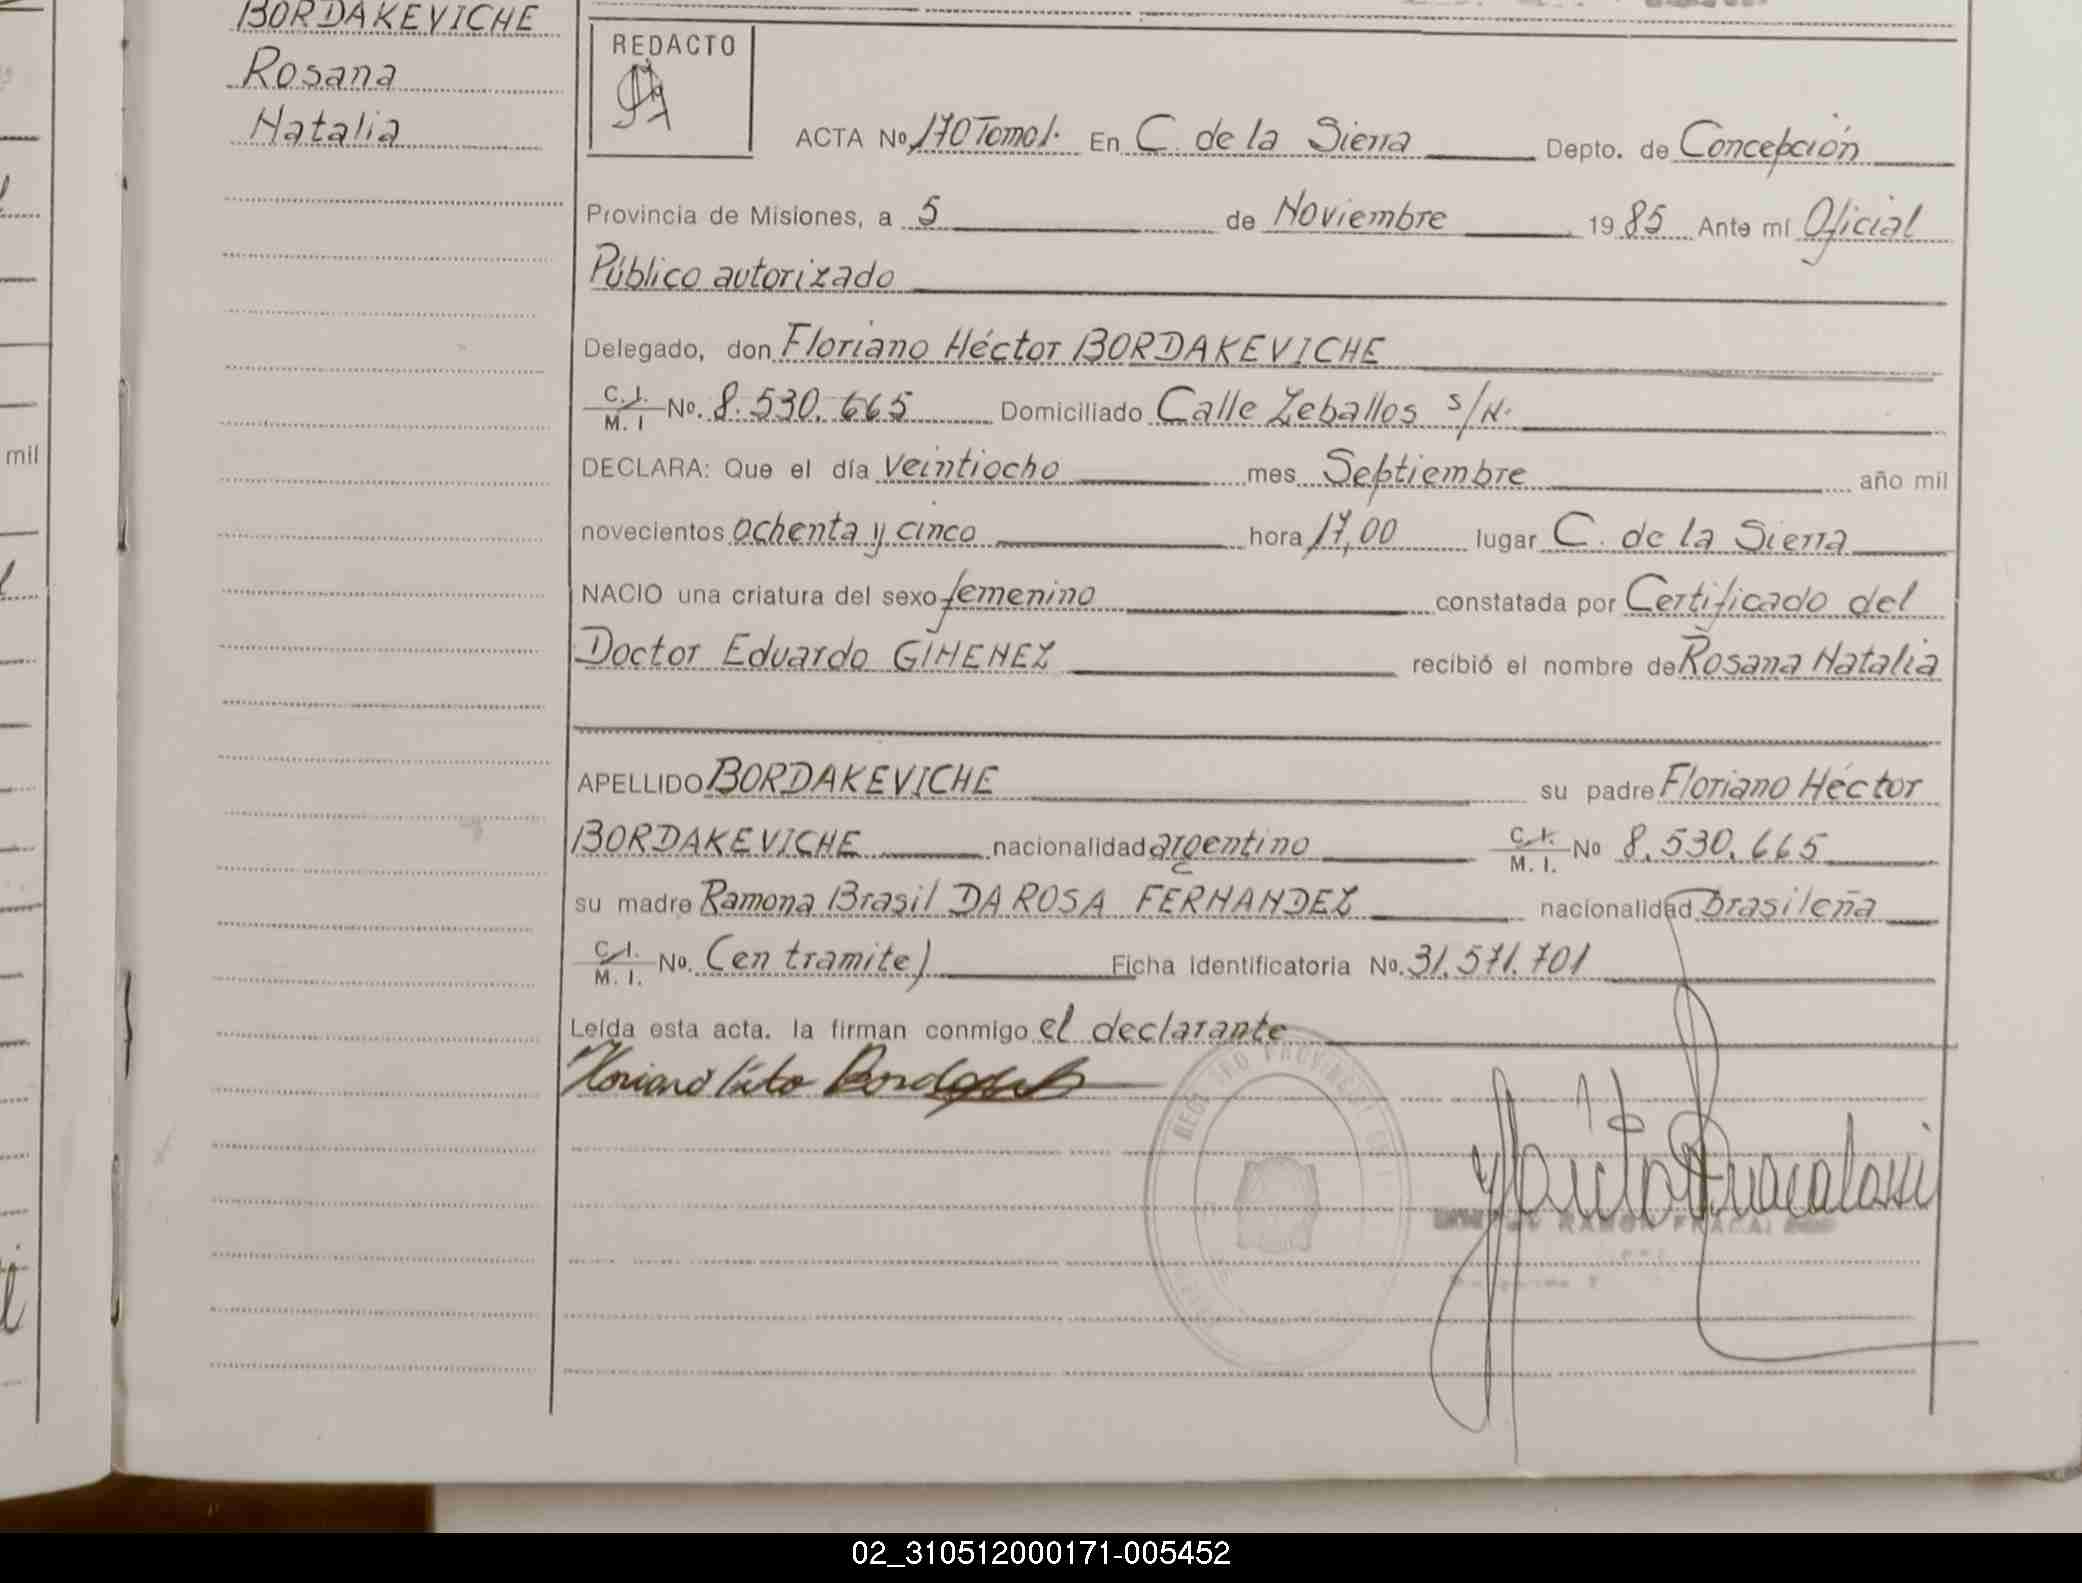 BORDAKEVICHE
Rosana
Natalia
REDACTO
ACTA No 170 Tomo I. En C. de la Sierra Depto. de Concepción
Provincia de Misiones, a 5 de Noviembre 1985 Ante mí Oficial
Público autorizado
Delegado, don Floriano Héctor BORDAKEVICHE
C. I.
M. I No. 8.530.665 Domiciliado Calle Zeballos s/N.
DECLARA: Que el día veintiocho mes Septiembre año mil
novecientos ochenta y cinco hora 17,00 lugar C. de la Sierra
NACIO una criatura del sexo femenino constatada por Certificado del
Doctor Eduardo GIMENEZ recibió el nombre de Rosana Natalia
APELLIDO BORDAKEVICHE su padre Floriano Héctor
BORDAKEVICHE nacionalidad argentino C. I.
M. I. No 8.530.665
su madre Ramona Brasil DA ROSA FERNANDEZ nacionalidad brasileña
C. I.
M. I. No. (en tramite) Ficha Identificatoria No. 31.571.701
Leída esta acta. la firman conmigo el declarante
REGISTRO PROVINCIAL DE
RAMON FRACALOSSI
mil
02_310512000171-005452